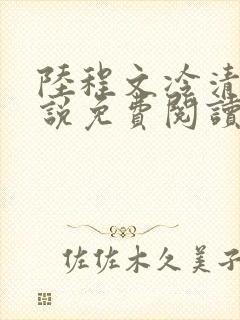 陸程文冷清
說免費閱讀
佐佐木久美子